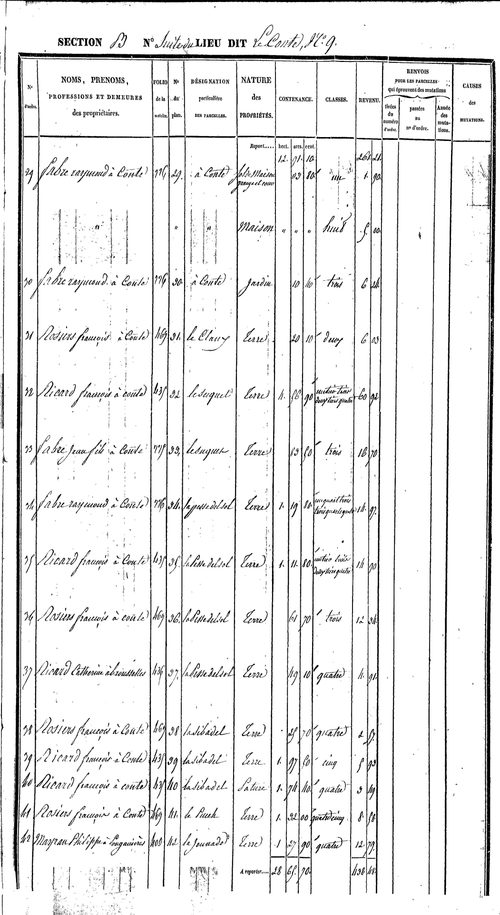 SECTION B N° Suite du LIEU DIT Le Conte, N° 9.
N° d'ordre. NOMS, PRENOMS, PROFESSIONS ET DEMEURES des propriétaires. FOLIO de la matrice. N° du plan. DÉSIGNATION particulière DES PARCELLES. NATURE des PROPRIÉTÉS. CONTENANCE. CLASSES. REVENU. RENVOIS POUR LES PARCELLES qui éprouvent des mutations CAUSES des MUTATIONS.
tirées du numéro d'ordre. passées au n° d'ordre. Année des mutations.
Report..... hect. ares. cent.
12. 91. 10. 261. 21.
29 fabre raymond à Conte 336 29. à Conte sol de Maison grange et cour 03 80 un 1. 90.
" " " Maison " " " huit 5. 00.
30 fabre raymond à Conte 336 30. à Conte Jardin 10 40 trois 6 24
31 Rosiers françois à Conte 469 31. le Claux Terre 20 10 deux 6 03
32 Ricard françois à conte 435 32 le suquet Terre 4. 56 90 60 92
33 fabre Jean fils à Conte 335 33. le suquet Terre 83 50 trois 16 70
34 fabre raymond à Conte 336 34. la pesse del sol Terre 1. 19 80 14. 97.
35 Ricard françois à Conte 435 35. la Pesse del sol Terre 1. 11. 80. 14 90
36 Rosiers françois à conte 469 36. la Pesse del sol Terre 61 70 trois 12 34
37 Ricard Catherine à brousselles 434 37. la Pesse del sol Terre 49 10 quatre 4. 91.
38 Rosiers françois à Conte 469 38 la sibadel Terre 25 70 quatre 2 57
39 Ricard françois à Conte 435 39 la sibadel Terre 1. 97 60 cinq 5 93
40 Ricard françois à conte 435 40 la sibadel Pature 1. 74 40 quatre 3 49
41 Rosiers françois à Conte 469 41. le Puech Terre 1. 32 00 quatre cinq 8 58
42 Mayran Philippe à 400 42. Terre 1 27 90 quatre 12 79
A reporter.... 28 65. 70. 438 48.